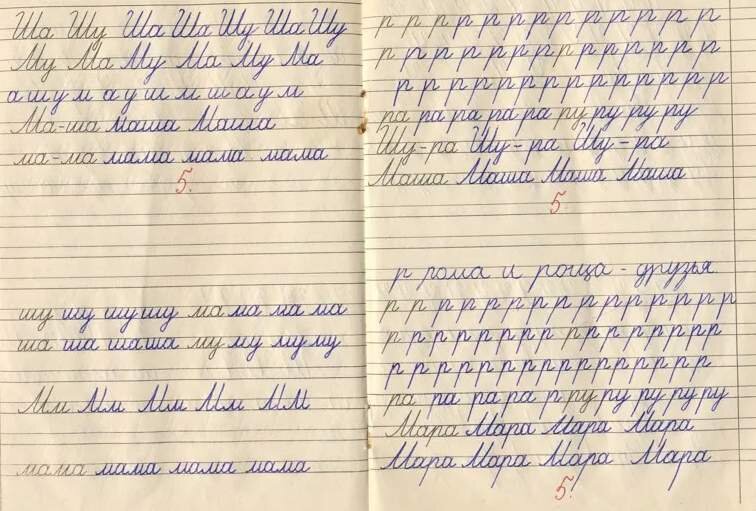 Ша Шу Ша Ша Шу Ша Шу
Му Ма Му Ма Му Ма
а ш у м а у ш м ш а у м
Ма-ша маша Маша
ма-ма мама мама мама
5.
шу шу шушу ма ма ма ма
ша ша шаша му му муму
Мм Мм Мм Мм ММ
мама мама мама мама
р р р р р р р р р р р р р
р р р р р р р р р р р р р р р
р р р р р р р р р р р р р р р
ра ра ра ра ра ру ру ру ру
Шу-ра Шу-ра Шу-ра
Маша Маша Маша Маша
5.
р рома и роща - друзья.
р р р р р р р р р р р р р р р р
р р р р р р р р р р р р р р р
р р р р р р р р р р р р р р р р
ра ра ра ра р ру ру ру ру ру
Мара Мара Мара Мара
Мара Мара Мара Мара
5.